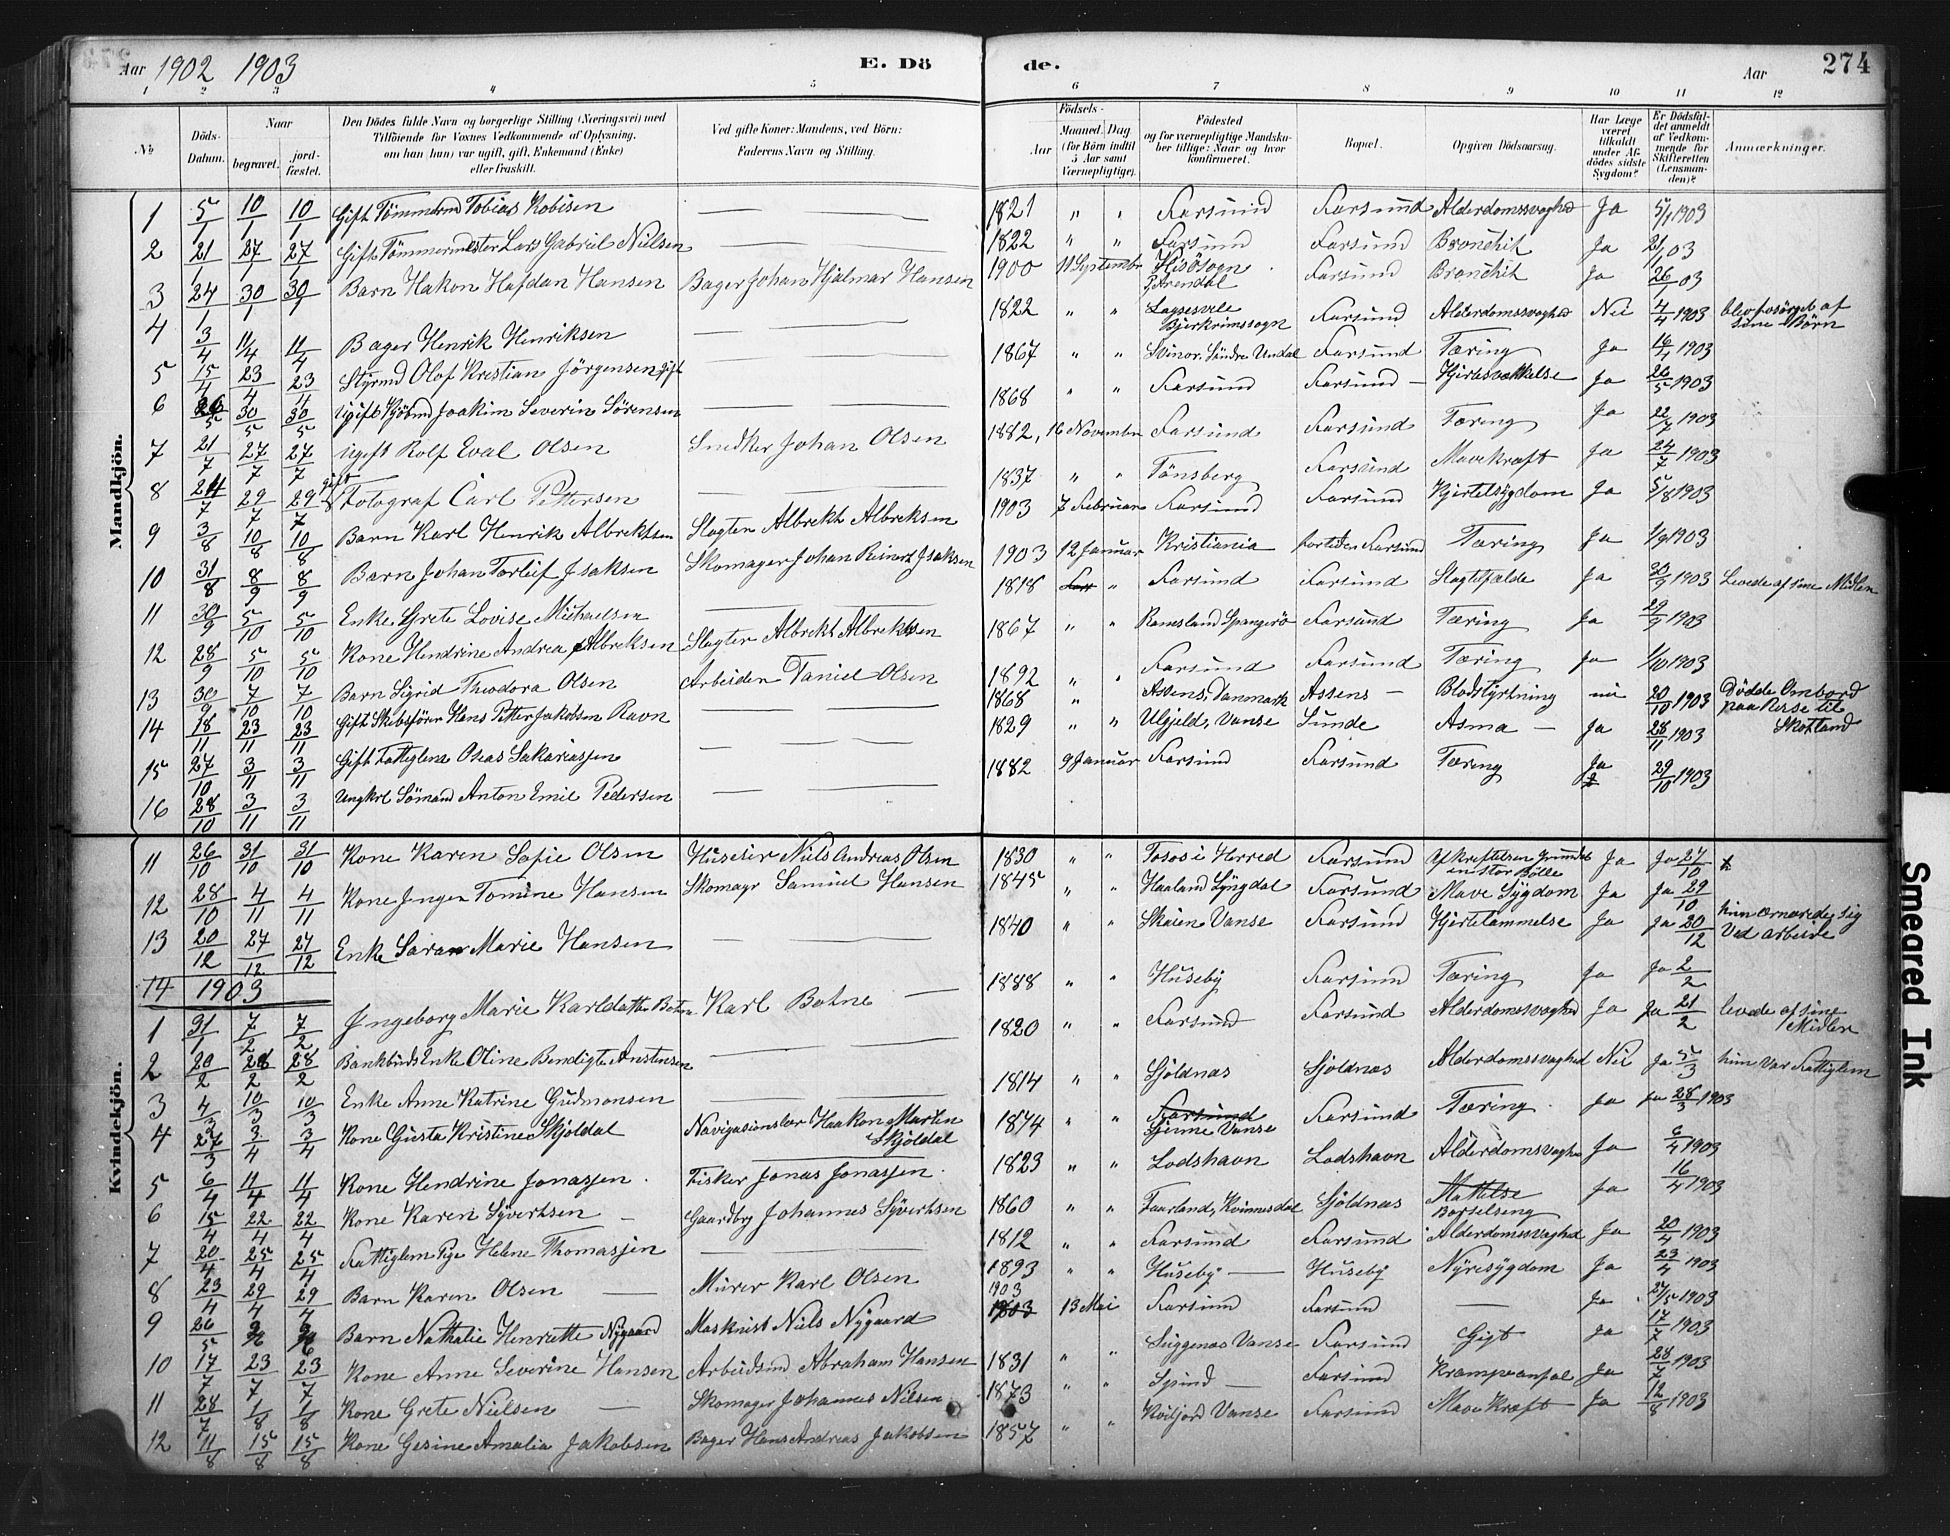 Aar 1902 1903 E. Dö de. Aar 274
1 2 3 4 5 6 7 8 9 10 11 12
No. Döds-Datum. Naar begravet. jord-fæstet. Den Dödes fulde Navn og borgerlige Stilling (Næringsvei) med Tilföiende for Voxnes Vedkommende af Oplysning, om han (hun) var ugift, gift, Enkemand (Enke) eller fraskilt. Ved gifte Koner: Mandens, ved Börn: Faderens Navn og Stilling. Födsels- Aar Maaned. Dag (for Börn indtil 5 Aar samt Værnepligtige). Födested og for værnepligtige Mandskaber tillige: Naar og hvor konfirmeret. Bopæl. Opgiven Dödsaarsag. Har Læge været tilkaldt under Afdödes sidste Sygdom? Er Dödsfaldet anmeldt af Vedkommende for Skifteretten (Lensmanden)? Anmærkninger.
Mandkjön.
1 5/1 10/1 10/1 Gift Tömmermd Tobias Robisen 1821 " " Farsund Farsund Alderdomssvaghed Ja 5/1 1903
2 21/1 27/1 27/1 Gift Tömmermester Lars Gabriel Nielsen 1822 " " Farsund Farsund Bronchit Ja 21/1 03
3 24/1 30/1 30/1 Barn Hakon Hafdan Hansen Bager Johan Hjalmar Hansen 1900 11 Septembr Hisösogn p. Arendal Farsund Bronchit Ja 26/1 03
4 3/4 11/4 11/4 Bager Henrik Henriksen 1822 " " Bjerkrimssogn Farsund Alderdomssvaghed Nei 4/4 1903 blev forsörget af sine Börn
5 15/4 23/4 23/4 Styrmd Olof Kristian Jörgensen gift 1867 " " Svinor, Söndre Undal Farsund Tæring Ja 16/4 1903
6 26/5 30/5 30/5 Ugift Kjöbmd Joakim Severin Sörensen 1868 " " Farsund Farsund Ja 26/5 1903
7 21/7 27/7 27/7 Ugift Rolf Eval Olsen Snedker Johan Olsen 1882, 16 Novembr Farsund Farsund Tæring Ja 22/7 1903
8 24/7 29/7 29/7 gift Fotograf Carl Pettersen 1837 " " Tönsberg Farsund Mavekræft Ja 24/7 1903
9 3/8 10/8 10/8 Barn Karl Henrik Albrektsen Slagter Albrekt Albreksen 1903 7 Februar Farsund Farsund Kjertelsygdom Ja 5/8 1903
10 31/8 8/9 8/9 Barn Johan Torleif Isaksen Skomager Johan Reinert Isaksen 1903 12 Januar Kristiania fortiden Farsund Tæring Ja 1/9 1903
11 30/9 5/10 5/10 Enke Grete Lovise Michaelsen 1818 " Farsund Farsund Slagtilfælde Ja 30/9 1903 Levede af sine Midler
12 28/9 5/10 5/10 Kone Hendrine Andrea Albreksen Slagter Albrekt Albrektsen 1867 " " Ramsland Spangerö Farsund Tæring Ja 29/9 1903
13 30/9 7/10 7/10 Barn Sigrid Theodora Olsen Arbeider Daniel Olsen 1892 " " Farsund Farsund Tæring Ja 1/10 1903
14 18/11 23/11 23/11 Gift Skibsförer Hans Petter Jakobsen Ravn 1868 " Assens, Danmark Assens Blodstyrtning nei 20/10 1903 Dödde Ombord paa Reise til Skotland
15 27/10 3/11 3/11 Gift Fattiglem Oseas Sakariasjen 1829 " " Ulgjeld, Vanse Sunde Asma Ja 28/11 1903
16 28/10 3/11 3/11 Ungkrl Sömand Anton Emil Pedersen 1882 9 Januar Farsund Farsund Tæring Ja 29/10 1903
Kvindekjön.
11 26/10 31/10 31/10 Kone Karen Sofie Olsen Huseier Niels Andreas Olsen 1830 " " Fosos i Herred Farsund Afkræftelsen Grundet en stor Bölle Ja Ja 27/10
12 28/10 4/11 4/11 Kone Inger Tomine Hansen Skomagr Samuel Hansen 1845 " " Haaland Lyngdal Farsund Mave Sygdom Ja Ja 29/10
13 20/12 27/12 27/12 Enke Sara Marie Hansen 1840 " " Skaien Vanse Farsund Hjertelammelse Ja Ja 20/12 hun ernærede sig ved arbeide
14 1903
1 31/1 7/2 7/2 Ingeborg Marie Karldatter Botne Karl Botne 1888 " " Huseby Farsund Tæring Ja Ja 2/2
2 20/2 28/2 28/2 Bankbuds Enke Oline Bendigte Anstensen 1820 " " Farsund Farsund Alderdomssvaghed Ja Ja 21/2 levede af sine Midler
3 4/3 10/3 10/3 Enke Anne Katrine Gudmonsen 1814 " " Sjöldnæs Sjöldnæs Alderdomssvaghed Nei Ja 5/3 hun var Fattiglem
4 27/3 3/4 3/4 Kone Giesta Kristine Skjoldal Navigasionslær Haakon Martin Skjoldal 1874 " " Farsund Gjeinne Vanse Farsund Tæring Ja Ja 28/3 1903
5 6/4 11/4 11/4 Kone Hendrine Jonasjen Fisker Jonas Jonasjen 1823 " " Lodshavn Lodshavn Alderdomsvaghed Ja 6/4 1903
6 15/4 22/4 22/4 Kone Karen Syvertsen Gaardbr Johannes Syvertsen 1860 " " Faarland, Kvinnesdal Sjöldnæs Barselseng Ja 16/4 1903
7 20/4 25/4 25/4 Fattiglem Pige Helene Thomasjen 1812 " " Farsund Farsund Alderdomssvaghed Ja 20/4 1903
8 23/4 29/4 29/4 Barn Karen Olsen Murer Karl Olsen 1893 " " Huseby Huseby Nyresygdom Ja 23/4 1903
9 26/5 Barn Nathalie Henriette Nygaard Maskinist Niels Nygaard 1903 13 Mai Farsund Farsund Ja 27/5 1903
10 17/7 23/7 23/7 Kone Anne Severine Hansen Arbeidsmd Abraham Hansen 1831 " " Vanse Farsund Gigt Ja 17/7 1903
11 28/7 1/8 1/8 Kone Grete Nielsen Skomager Johannes Nilsen 1873 " " Spind Farsund Krampeanfal Ja 28/7 1903
12 11/8 15/8 15/8 Kone Gesine Amalia Jakobsen Bager Hans Andreas Jakobsen 1857 " " Kviljord Vanse Farsund Mave Kræft Ja 12/8 1903
Smeared Ink